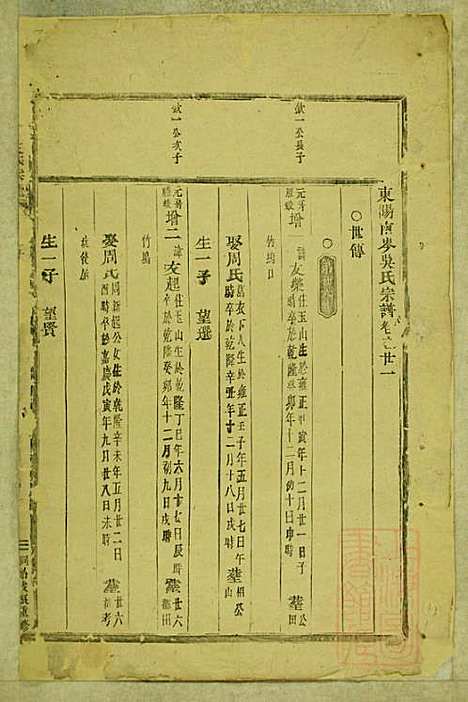 東陽南岑吳氏宗譜卷之廿一
○世傳
欽一公長子
元房
增一
諱友榮住玉山生於雍正甲寅年十二月廿一日子
時卒於乾隆癸卯年十二月初十日申時
葬公田
竹塢口
娶周氏葛衣下人生於雍正壬子年五月廿七日午
時卒於乾隆辛丑年十二月十八日戌時
葬相公山
生一子 望選
欽一公次子
元房
增二
諱友起住玉山生於乾隆丁巳年六月廿七日辰時
卒於乾隆癸卯年十二月初九日戌時
葬廿六
竹塢
娶周氏周新起公女生於乾隆辛未年五月廿二日
酉時卒於嘉慶戊寅年九月廿八日未時
葬廿六
生一子 望賢